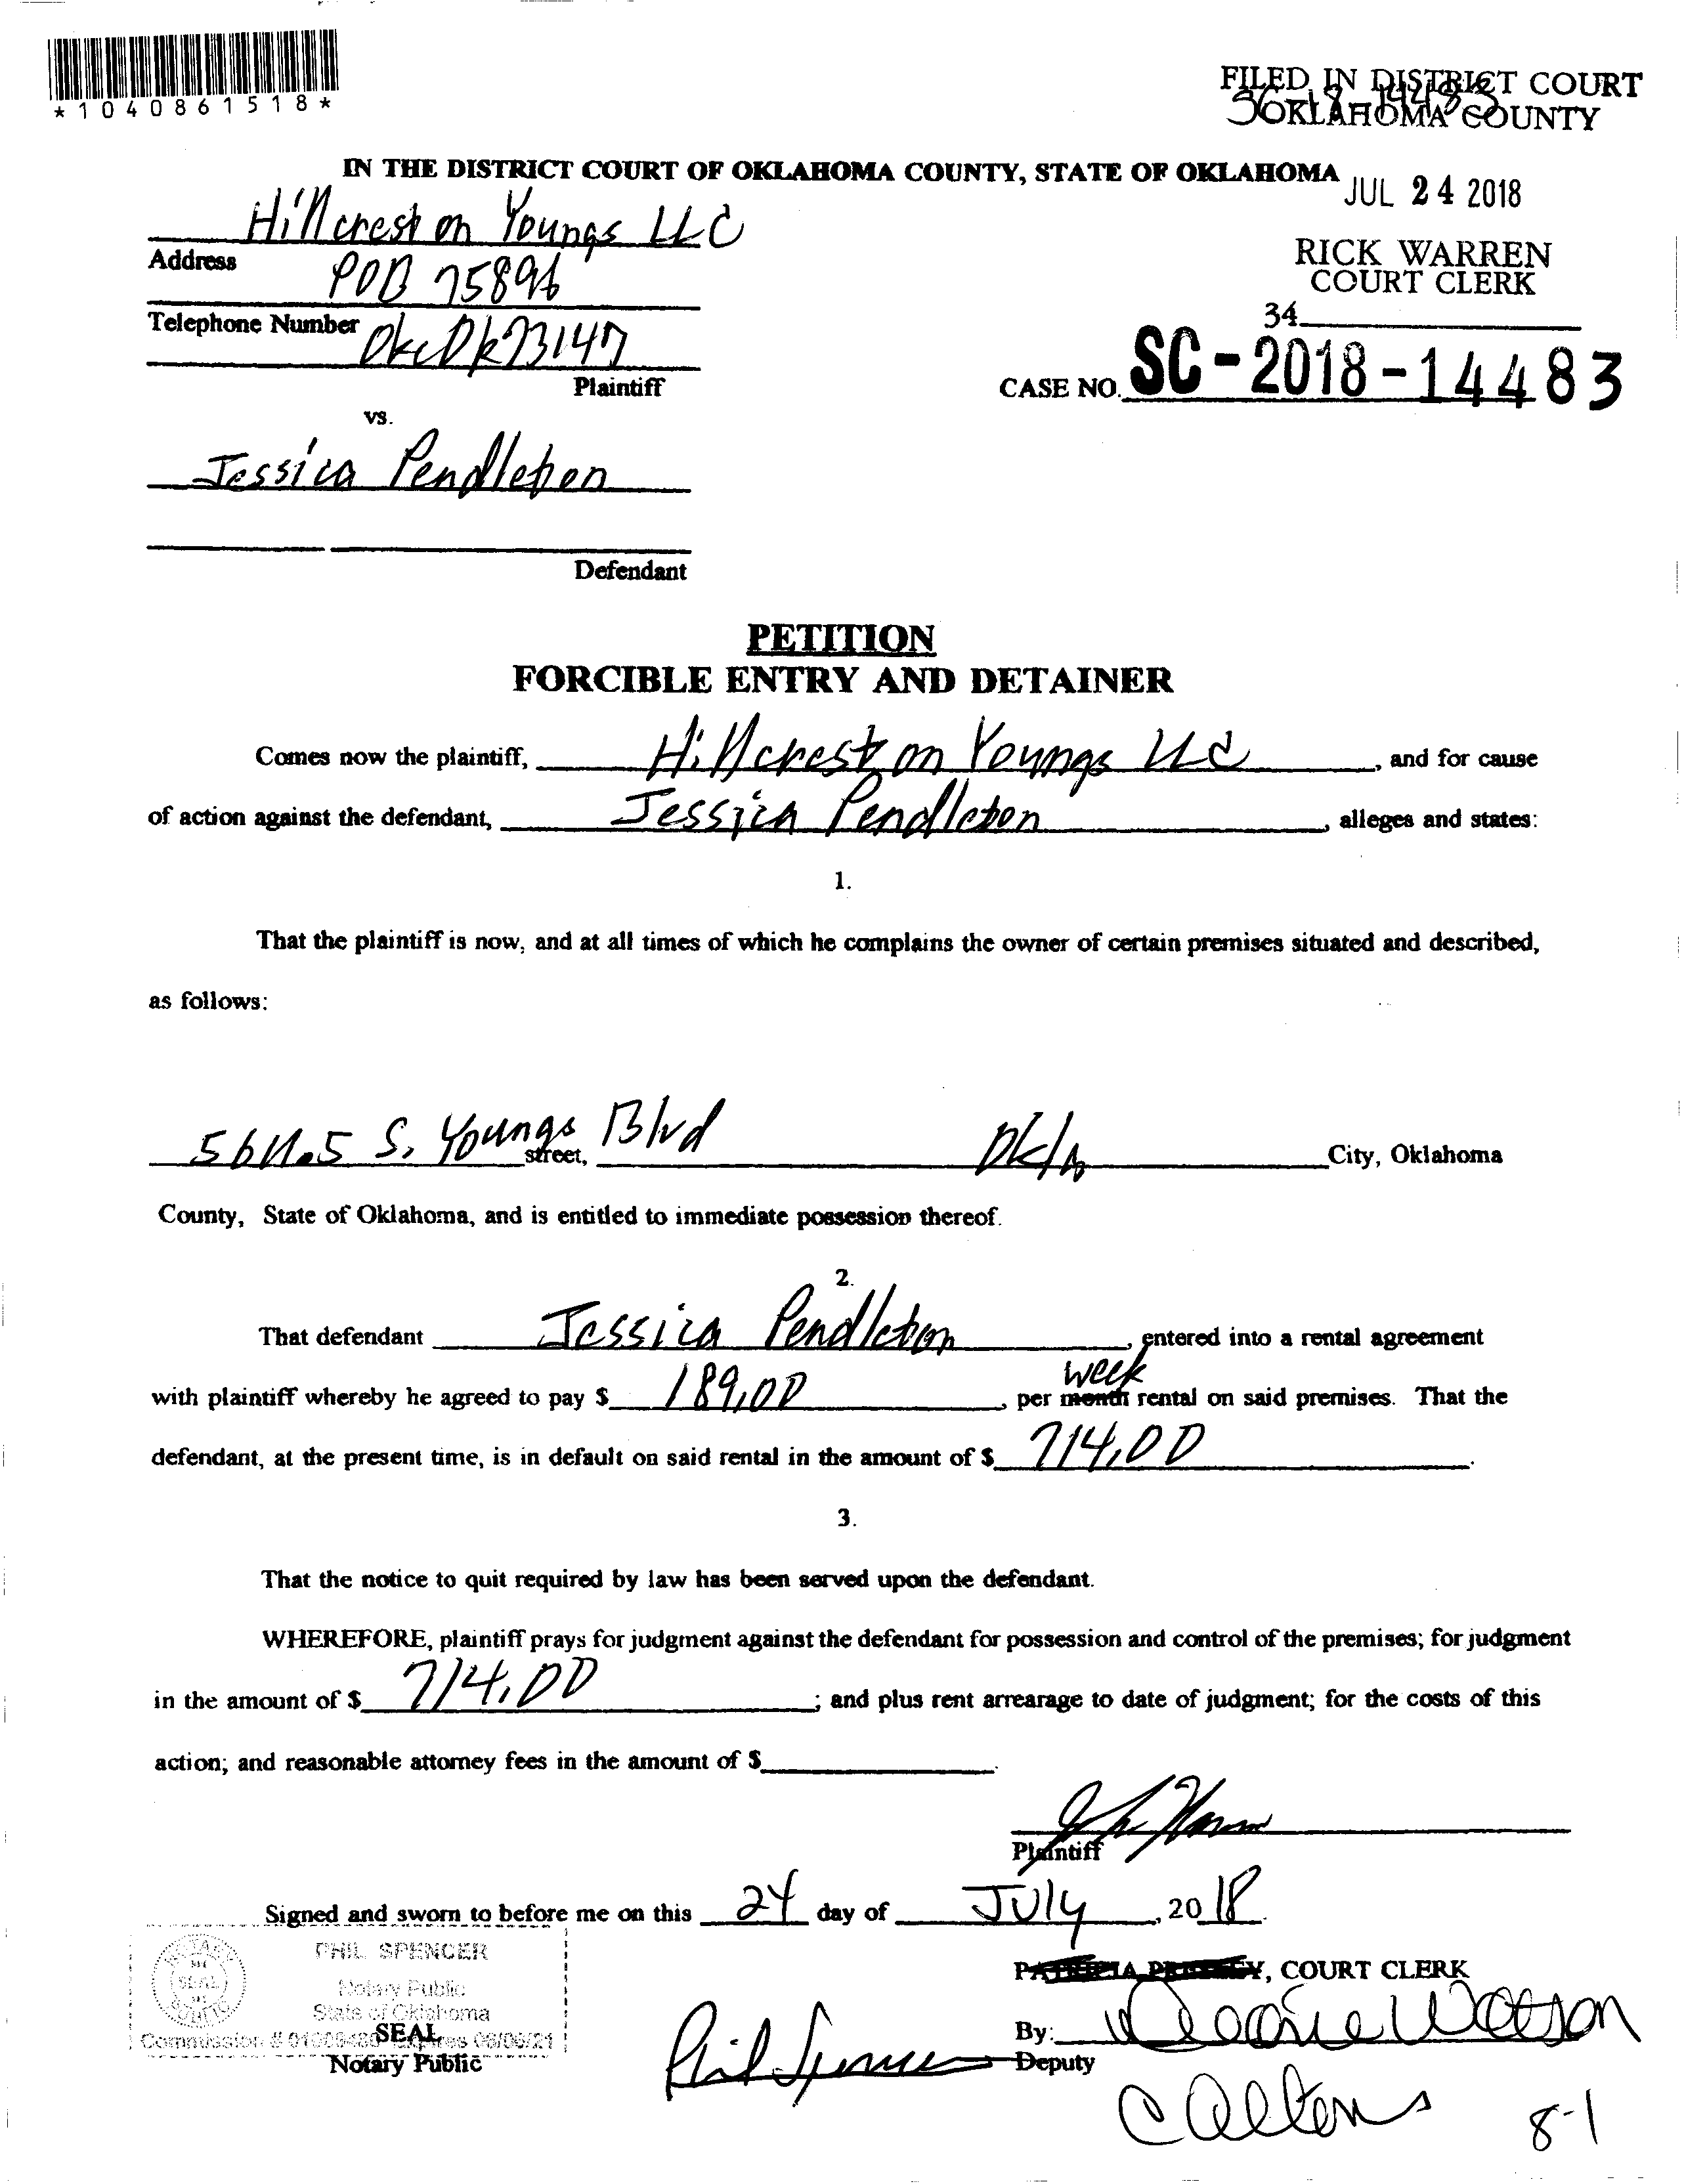 *1040861518*
FILED IN DISTRICT COURT
OKLAHOMA COUNTY
IN THE DISTRICT COURT OF OKLAHOMA COUNTY, STATE OF OKLAHOMA
JUL 24 2018
Hillcrest on Youngs LLC
RICK WARREN
COURT CLERK
Address
POB 75896
34
Telephone Number OkcOk 73147
Plaintiff
CASE NO. SC-2018-14483
vs.
Jessica Pendleton
Defendant
PETITION
FORCIBLE ENTRY AND DETAINER
Comes now the plaintiff, Hillcrest on Youngs LLC, and for cause
of action against the defendant, Jessica Pendleton, alleges and states:
1.
That the plaintiff is now, and at all times of which he complains the owner of certain premises situated and described,
as follows:
S. Youngs Blvd street, City, Oklahoma
County, State of Oklahoma, and is entitled to immediate possession thereof.
2.
That defendant Jessica Pendleton, entered into a rental agreement
week
with plaintiff whereby he agreed to pay $ 189.00, per month rental on said premises. That the
defendant, at the present time, is in default on said rental in the amount of $ 714.00.
3.
That the notice to quit required by law has been served upon the defendant.
WHEREFORE, plaintiff prays for judgment against the defendant for possession and control of the premises; for judgment
in the amount of $ 714.00; and plus rent arrearage to date of judgment; for the costs of this
action; and reasonable attorney fees in the amount of $.
Plaintiff
Signed and sworn to before me on this 24 day of July, 2018.
PHIL SPENCER
Notary Public
State of Oklahoma
Commission # Expires 06/06/21
SEAL
Notary Public
Phil Spencer
, COURT CLERK
By: Watson
Deputy
8-1